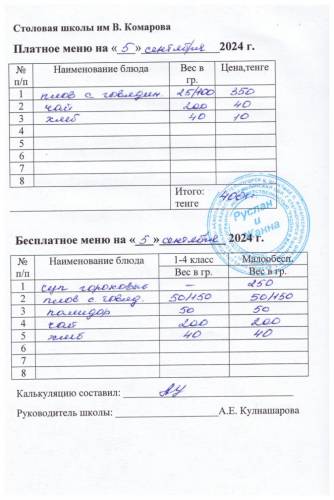 Столовая школы им В. Комарова
Платное меню на « 5 » сентября 2024 г.
№ п/п Наименование блюда Вес в гр. Цена,тенге
1 плов с говядин. 25/100 350
2 чай 200 40
3 хлеб 40 10
4
5
6
7
8
Итого: тенге 400
Руслан и Жанна
Бесплатное меню на « 5 » сентября 2024 г.
№ п/п Наименование блюда 1-4 класс Малообесп.
Вес в гр. Вес в гр.
1 суп гороховый — 250
2 плов с говяд. 50/150 50/150
3 помидор 50 50
4 чай 200 200
5 хлеб 40 40
6
7
8
Калькуляцию составил:
Руководитель школы: А.Е. Кулнашарова